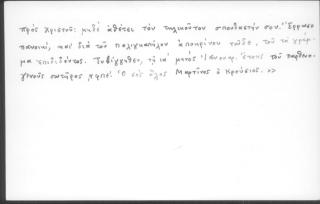 πρὸς Χριστοῦ· μηδὲ ἀθέτει τὸν τηλικοῦτον σπουδαστήν σου. Ἔρρωσο
πανοικί, καὶ διὰ τοῦ παλιγκαπήλου ἀποκρίνου τῷδε, τοῦ τὰ γράμ-
μα ἐπιδιδόντος. Τυβίγγηθεν, τῇ ιά μηνὸς Ἰανουαρ. ἔτους τοῦ παρθενο-
γενοῦς σωτῆρος ͵αφπέ. Ὁ σὸς ὅλος Μαρτῖνος ὁ Κρούσιος. »